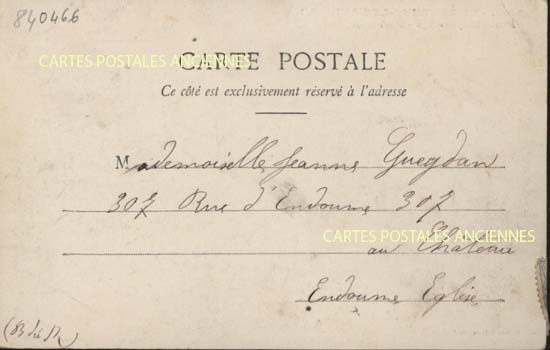 840466
CARTES POSTALES ANCIENNES
CARTE POSTALE
Ce côté est exclusivement réservé à l'adresse
Mademoiselle Jeanne Guegdan
307 Rue d'Endoume 307
CARTES POSTALES ANCIENNES
au Château
Endoume Eglise